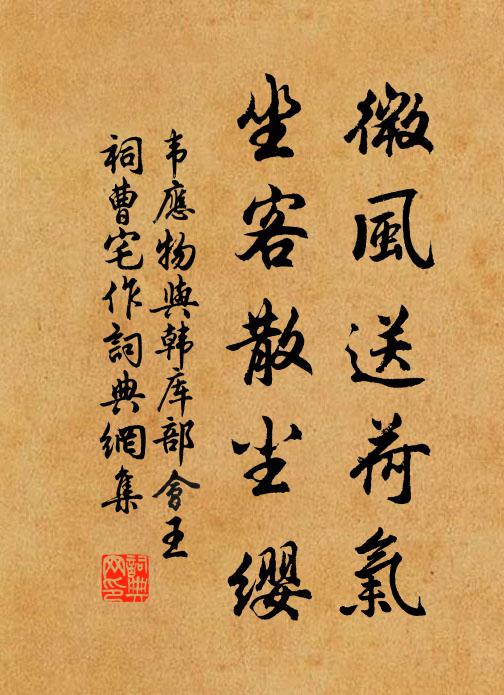 微風送荷氣
坐客散尘缨
韦應物與韩库部會王
祠曹宅作詞典網集
詞典网印